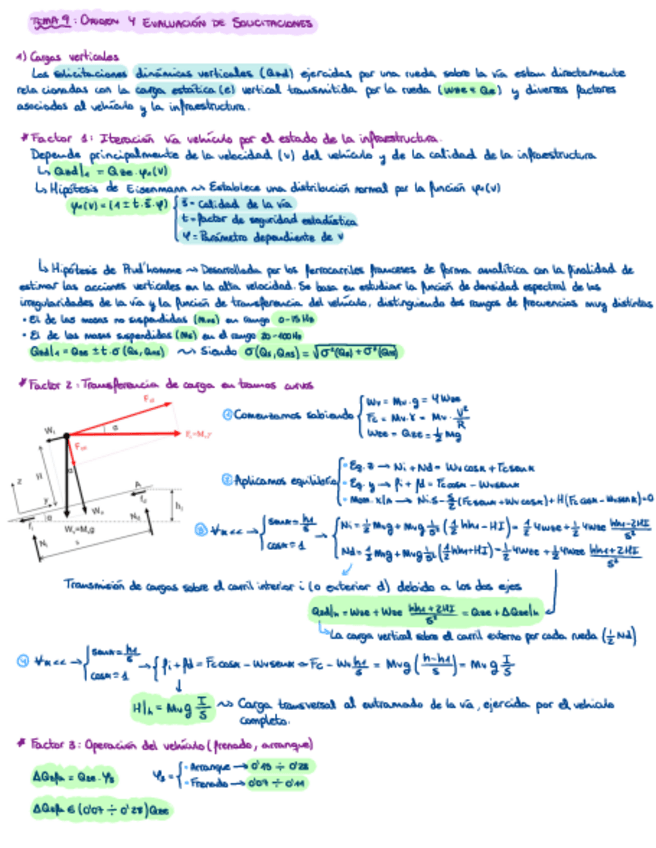 TEMA 9: ORIGEN Y EVALUACIÓN DE SOLICITACIONES
1) Cargas verticales
Las solicitaciones dinámicas verticales (Qzd) ejercidas por una rueda sobre la vía estan directamente
relacionadas con la carga estática (e) vertical transmitida por la rueda (Wze = Qe) y diversos factores
asociados al vehículo y la infraestructura.
* Factor 1: Iteración vía vehículo por el estado de la infraestructura.
Depende principalmente de la velocidad (v) del vehículo y de la calidad de la infraestructura
↳ Qzd|1 = Qze · φ1(v)
↳ Hipótesis de Eisenmann ~> Establece una distribución normal por la función φ1(v)
φ1(v) = (1 ± t·s̄·φ)
s̄ = calidad de la vía
t = factor de seguridad estadística
φ = Parámetro dependiente de v
↳ Hipótesis de Prud'homme ~> Desarrollada por los ferrocarriles franceses de forma analítica con la finalidad de
estimar las acciones verticales en la alta velocidad. Se basa en estudiar la función de densidad espectral de las
irregularidades de la vía y la función de transferencia del vehículo, distinguiendo dos rangos de frecuencias muy distintos
• El de las masas no suspendidas (Mns) en rango 0-15 Hz
• El de las masas suspendidas (Ms) en el rango 20-100Hz
Qzd|1 = Qze ± t·σ(Qs, Qns) ~> Siendo σ(Qs, Qns) = √σ²(Qs) + σ²(Qns)
* Factor 2: Transferencia de carga en tramos curvos
① Comenzamos sabiendo
Wv = Mv·g = 4Wze
Fc = Mv·γ = Mv · V²/R
Wze = Qze = 1/8 Mg
② Aplicamos equilibrio
• Eq. z → Ni + Nd = Wv cosα + Fc senα
• Eq. y → fi + fd = Fc cosα - Wv senα
• Mom. x|A → Ni·s - s/2 (Fc senα + Wv cosα) + H(Fc cosα - Wv senα) = 0
③ ∀α<< → senα = h1/s
cosα = 1
Transmisión de cargas sobre el carril interior i (o exterior d) debido a los dos ejes
Qzd|h = Wze + Wze hh1+2HI/s² = Qze + ΔQze|h
↳ La carga vertical sobre el carril externo por cada rueda (1/2 Nd)
④ ∀α<< → senα = h1/s
cosα = 1
→ fi + fd = Fc cosα - Wv senα = Fc - Wv h1/s = Mv g (h-h1/s) = Mv g I/s
H|h = Mv g I/S ~> Carga transversal al entramado de la vía, ejercida por el vehículo
completo.
* Factor 3: Operación del vehículo (frenado, arranque)
ΔQz|φ3 = Qze · φ3
φ3 = • Arranque → 0'15 ÷ 0'28
• Frenado → 0'07 ÷ 0'11
ΔQz|φ3 ∈ (0'07 ÷ 0'28) Qze